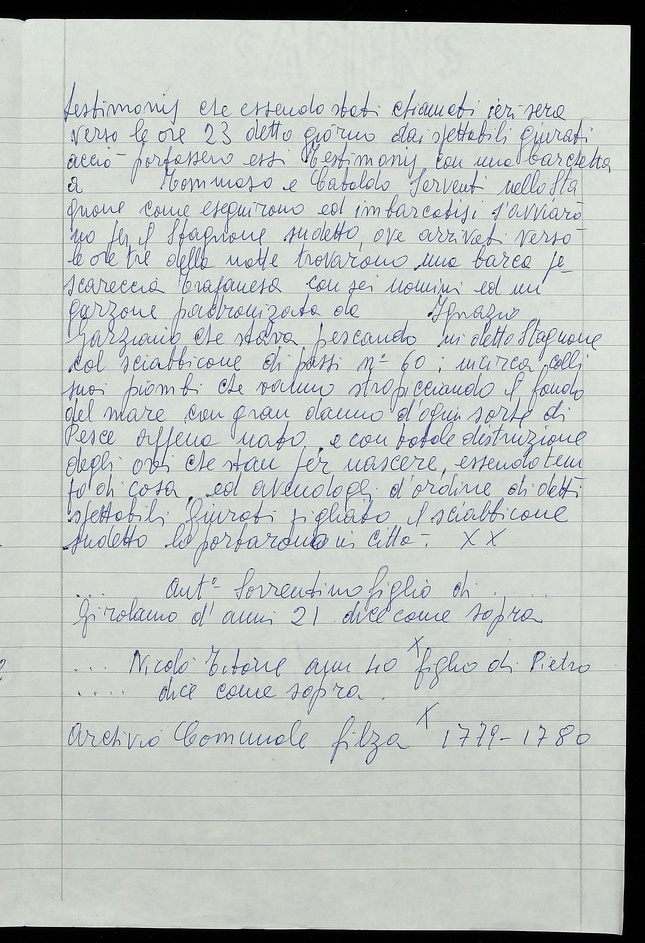 testimonij che essendo stati chiamati ieri sera
verso le ore 23 detto giorno dai spettabili giurati
acciò portassero essi testimonij con una barchetta
a Tommaso e Cataldo Serventi nello Sta
gnone come eseguirono ed imbarcatisi s'avviaro
no per il Stagnone sudetto, ove arrivati verso
le ore tre della notte trovarono una barca pe_
scareccia trapanesa con sei uomini ed un
garzone padronizata da Ignazio
che stava pescando in detto Stagnone
col sciabbicone di passi n° 60 : incirca colli
suoi piombi che vanno stropicciando il fondo
del mare con gran danno d'ogni sorte di
Pesce appena nato, e con totale distruzione
degli ovi che stan per nascere, essendo tem
po di cosa, ed avendogli d'ordine di detti
spettabili Giurati pigliato il sciabbicone
sudetto lo portarono in città -. X X
.... Ant° Sorrentino figlio di . ....
Girolamo d'anni 21 dice come sopra
.... Nicolò Titone anni 40 X figlio di Pietro
.... dice come sopra .
Archivio Comunale filza X 1779 - 1780